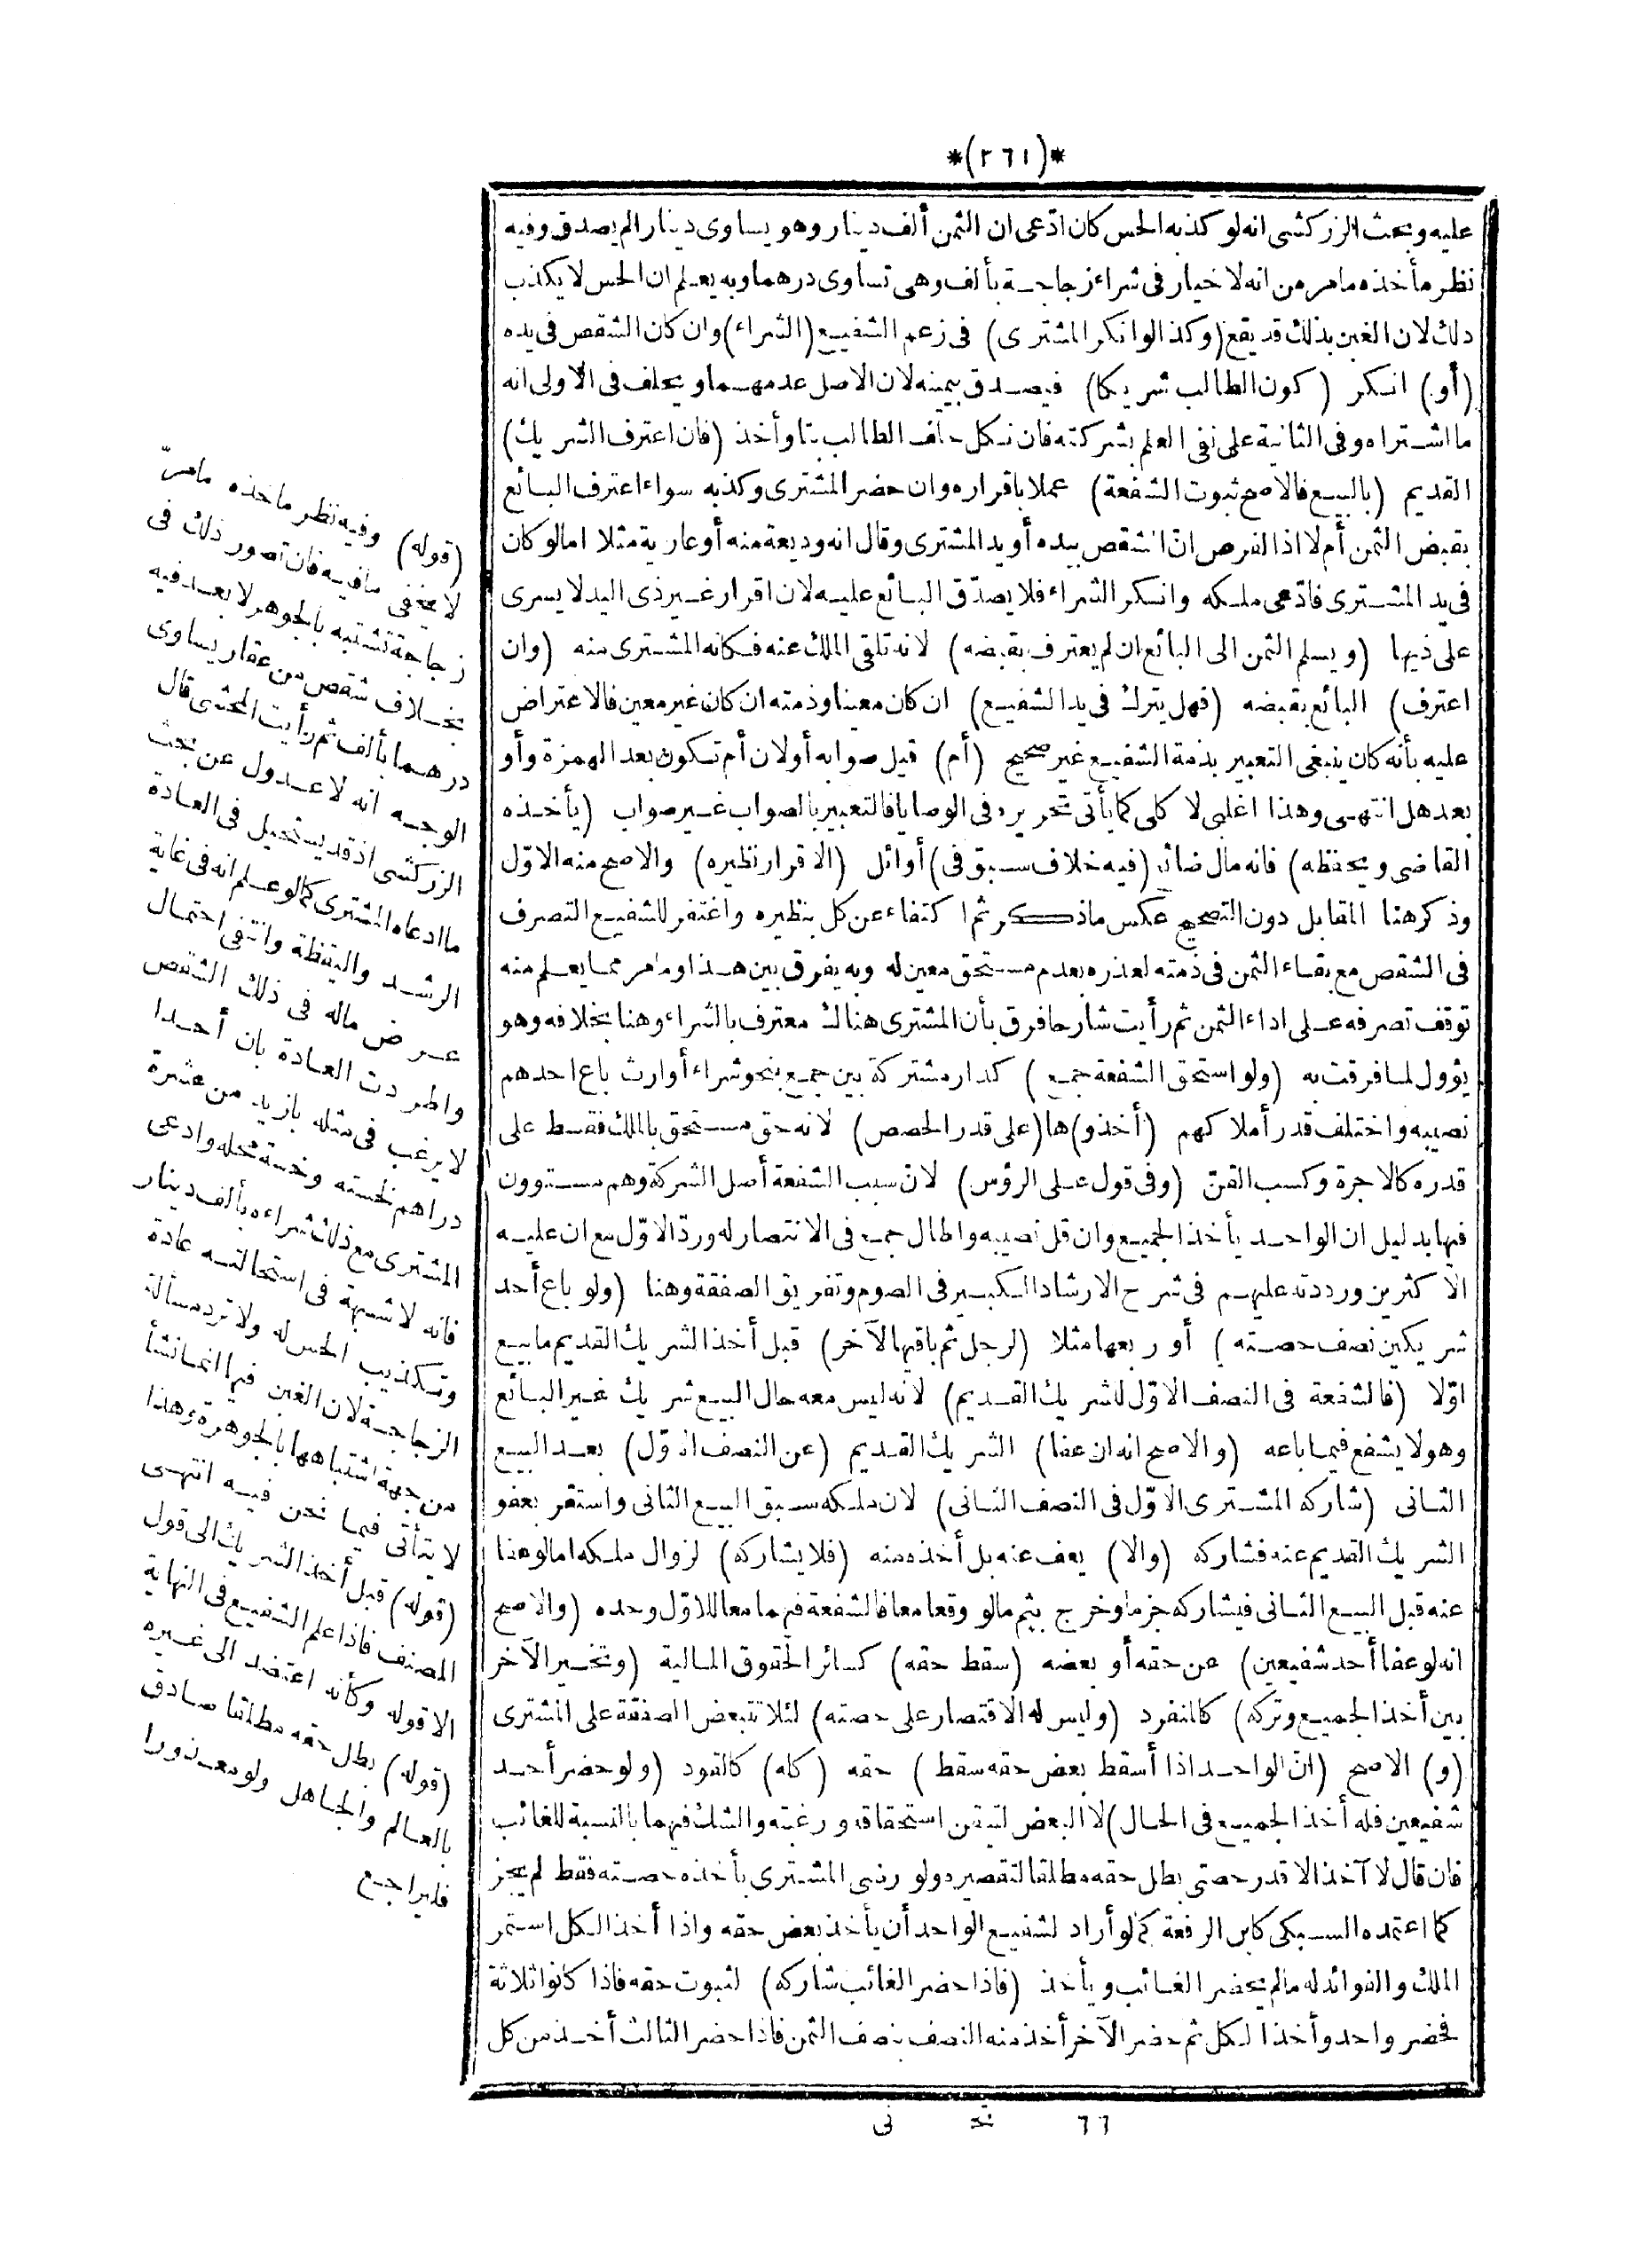 *(٢٦١)*
عليه وبحث الزركشى انه لو كذبه الحس كان ادّعى ان الثمن ألف دينار وهو يساوى دينار الم يصدق وفيه
نظر مأخذه مامر من انه لا خيار فى شراء زجاجة بألف وهى تساوى درهما وبه يعلم ان الحس لا يكذب
ذلك لان الغبن بذلك قد يقع (وكذا لو انكر المشترى) فى زعم الشفيع (الشراء) وان كان الشقص فى يده
(أو) انكر (كون الطالب شريكا) فيصدق بيمينه لان الاصل عدمهما ويحلف فى الاولى انه
ما اشتراه وفى الثانية على نفى العلم بشركته فان نكل حلف الطالب بتا وأخذ (فان اعترف الشريك)
القديم (بالبيع فالاصح ثبوت الشفعة) عملا باقراره وان حضر المشترى وكذبه سواء اعترف البائع
بقبض الثمن أم لا اذ الفرض انّ الشقص بيده أو يد المشترى وقال انه وديعة منه أو عارية مثلا امالو كان
فى يد المشترى فادّعى ملكه وانكر الشراء فلا يصدّق البائع عليه لان اقرار غير ذى اليد لا يسرى
على ذيها (ويسلم الثمن الى البائع ان لم يعترف بقبضه) لانه تلقى الملك عنه فكانه المشترى منه (وان
اعترف) البائع بقبضه (فهل يترك فى يد الشفيع) ان كان معينا وذمته ان كان غير معين فالاعتراض
عليه بأنه كان ينبغى التعبير بذمة الشفيع غير صحيح (أم) قيل صوابه أولان أم تكون بعد الهمزة وأو
بعد هل انتهى وهذا اغلبى لا كلى كما يأتى تحريره فى الوصايا فالتعبير بالصواب غير صواب (يأخذه
القاضى ويحفظه) فانه مال ضائع (فيه خلاف سبق فى) أوائل (الاقرار نظيره) والاصح منه الاوّل
وذكر هنا المقابل دون التصحيح عكس ماذكر ثم اكتفاء عن كل بنظيره واغتفر للشفيع التصرف
فى الشقص مع بقاء الثمن فى ذمته لعذره بعدم مستحق معين له وبه يفرق بين هذا ومامر مما يعلم منه
توقف تصرفه على اداء الثمن ثم رأيت شارحا فرق بأن المشترى هناك معترف بالشراء وهنا بخلافه وهو
يؤول لما فرقت به (ولو استحق الشفعة جمع) كدار مشتركة بين جمع بنحو شراء أو ارث باع احدهم
نصيبه واختلف قدر أملاكهم (أخذو) ها (على قدر الحصص) لانه حق مستحق بالملك فقسط على
قدره كالاجرة وكسب القنّ (وفى قول على الرؤس) لانّ سبب الشفعة أصل الشركة وهم مستوون
فيها بدليل ان الواحد يأخذ الجميع وان قل نصيبه واطال جمع فى الانتصار له وردّ الاوّل مع ان عليه
الاكثرين ورددته عليهم فى شرح الارشاد الكبير فى الصوم وتفريق الصفقة وهنا (ولو باع أحد
شريكين نصف حصته) أو ربعها مثلا (لرجل ثم باقيها لآخر) قبل أخذ الشريك القديم ما بيع
اوّلا (فالشفعة فى النصف الاوّل للشريك القديم) لانه ليس معه حال البيع شريك غير البائع
وهو لا يشفع فيما باعه (والاصح انه ان عفا) الشريك القديم (عن النصف الاوّل) بعد البيع
الثانى (شاركه المشترى الاوّل فى النصف الثانى) لان ملكه سبق البيع الثانى واستقر بعفو
الشريك القديم عنه فشاركه (والا) يعف عنه بل أخذه منه (فلا يشاركه) لزوال ملكه امالو عفا
عنه قبل البيع الثانى فيشاركه جزما وخرج بثم مالو وقعا معا فالشفعة فيهما معا للاوّل وحده (والاصح
انه لو عفا أحد شفيعين) عن حقه أو بعضه (سقط حقه) كسائر الحقوق المالية (وتخير الآخر
بين أخذ الجميع وتركه) كالمنفرد (وليس له الاقتصار على حصته) لئلا تتبعض الصفقة على المشترى
(و) الاصح (انّ الواحد اذا أسقط بعض حقه سقط) حقه (كله) كالقود (ولو حضر أحد
شفيعين فله أخذ الجميع فى الحال) لا البعض لتيقن استحقاقه ورغبته والشك فيهما بالنسبة للغائب
فان قال لا آخذ الا قدر حصتى بطل حقه مطلقا لتقصيره ولو رضى المشترى بأخذه حصته فقط لم يجز
كما اعتمده السبكى كابن الرفعة كما لو أراد الشفيع الواحد أن يأخذ بعض حقه واذا أخذ الكل استمر
الملك والفوائد له مالم يحضر الغائب ويأخذ (فاذا حضر الغائب شاركه) لثبوت حقه فاذا كانوا ثلاثة
فحضر واحد وأخذ الكل ثم حضر الآخر أخذ منه النصف بنصف الثمن فاذا حضر الثالث أخذ من كل
٦٦ تحـ نى
(قوله) وفيه نظر ماخذه مامرّ
لا يخفى مافيه فان تصور ذلك فى
زجاجة تشتبه بالجوهر لا بعد فيه
بخلاف شقص من عقار يساوى
درهما بألف ثم رأيت المحشى قال
الوجه انه لا عدول عن بحث
الزركشى اذ قد يستحيل فى العادة
ما ادعاه المشترى كما لو علم انه فى غاية
الرشد واليقظة وانتفى احتمال
غرض ماله فى ذلك الشقص
واطردت العادة بان أحدا
لا يرغب فى مثله بازيد من عشرة
دراهم لخسته وخسة محله وادعى
المشترى مع ذلك شراءه بألف دينار
فانه لا شبهة فى استحالته عادة
وتكذيب الحس له ولا ترد مسألة
الزجاجة لان الغبن فيها انما نشأ
من جهة اشتباهها بالجوهرة وهذا
لا يتأتى فيما نحن فيه انتهى
(قوله) قبل أخذ الشريك الى قول
المصنف فاذا علم الشفيع فى النهاية
الا قوله وكأنه اعتضد الى غيره
(قوله) بطل حقه مطلقا صادق
بالعالم والجاهل ولو معذورا
فليراجع